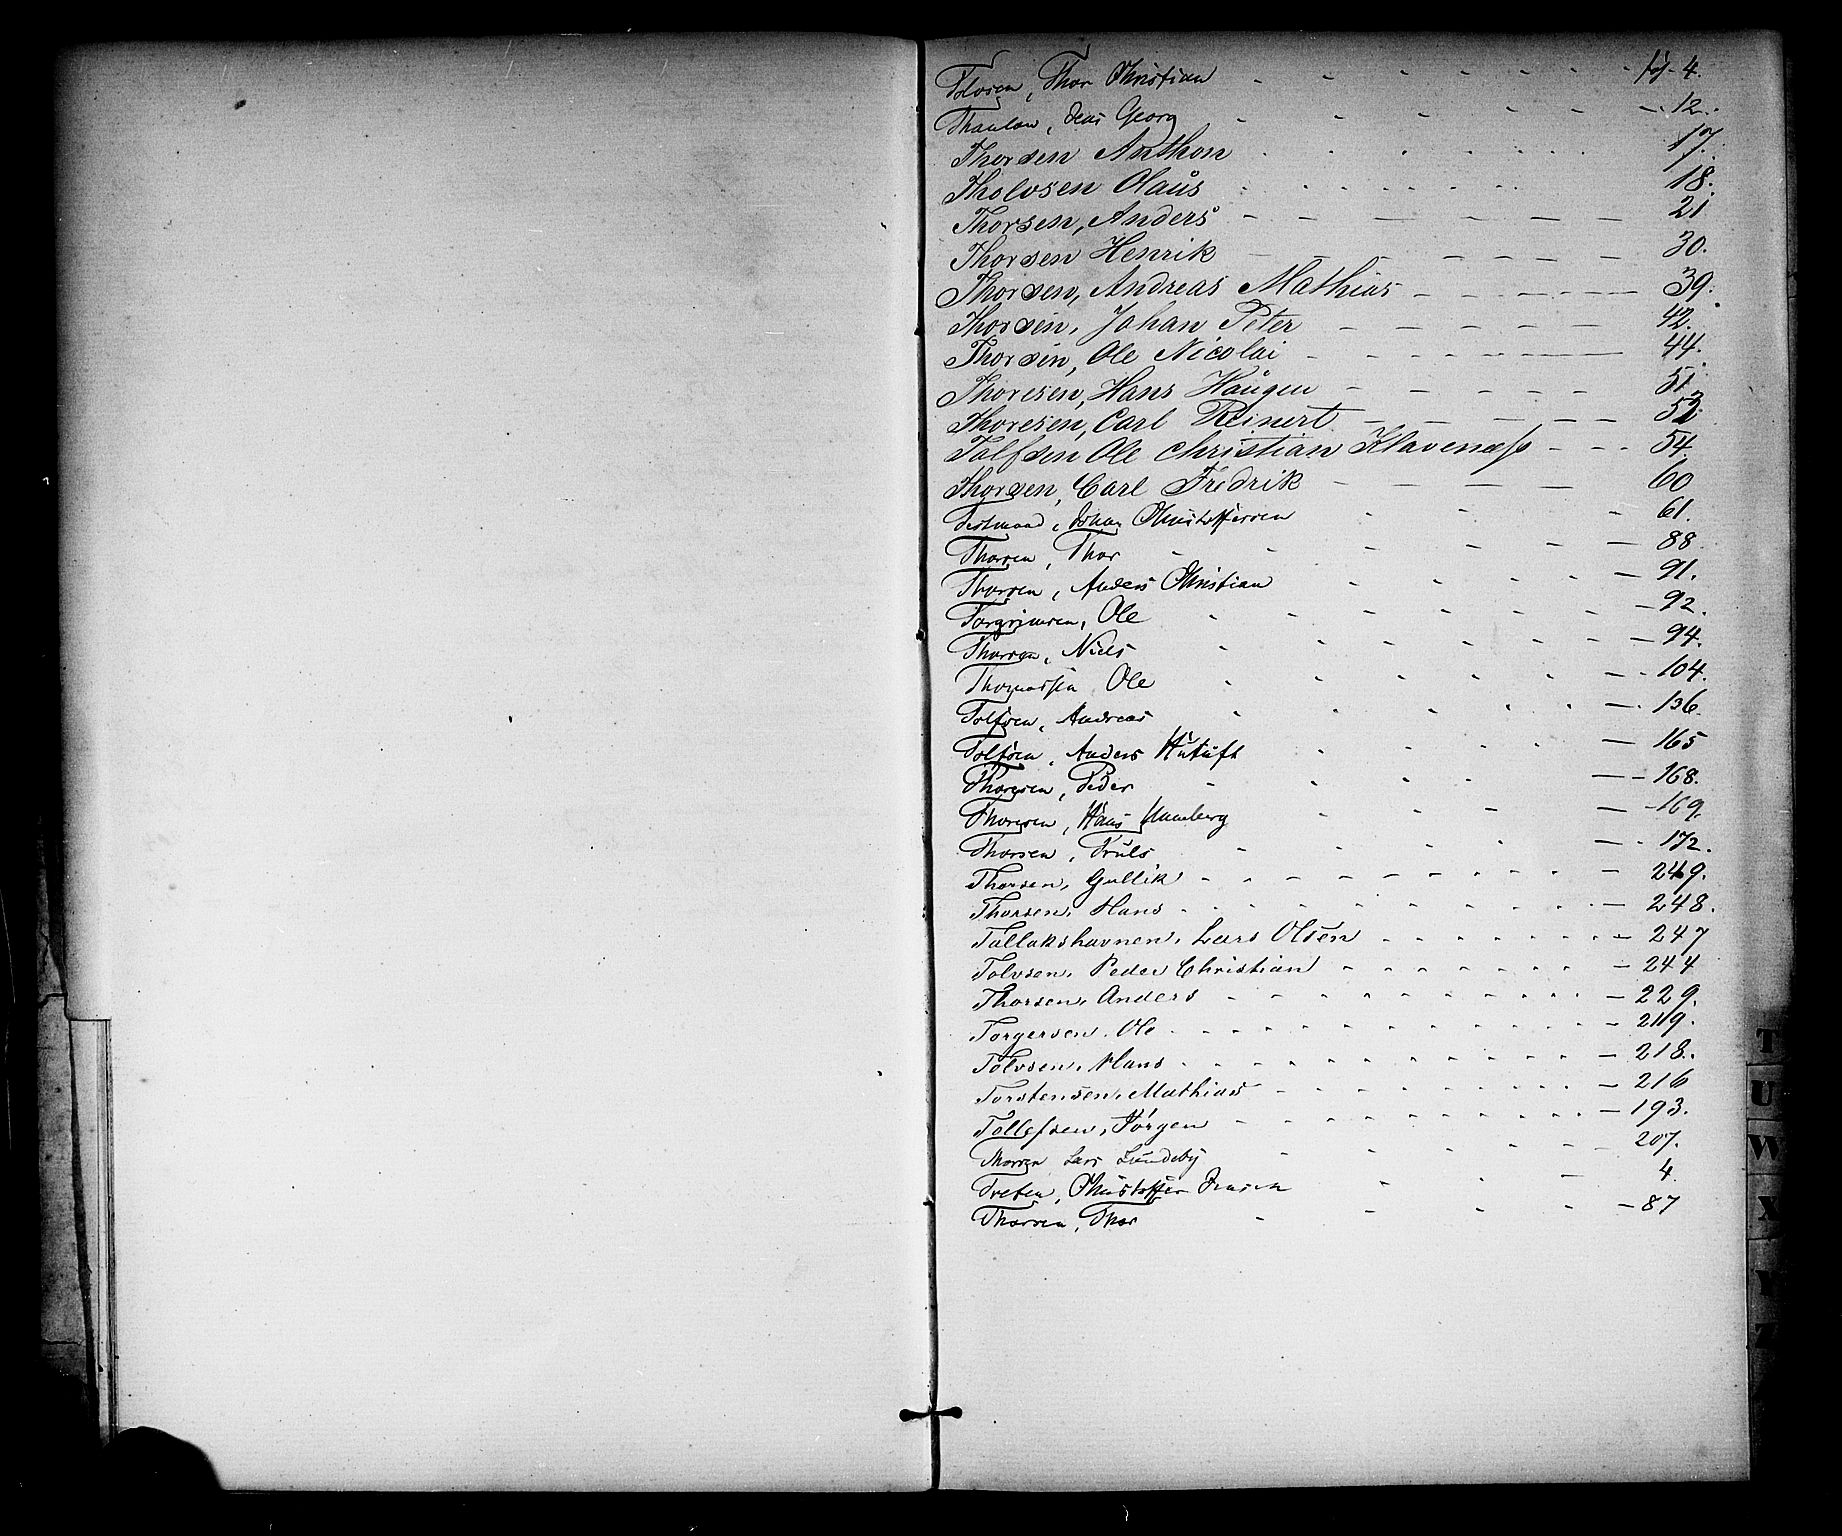 Tolvsen, Thor Christian - - - - - - fol. 4.
Thaulow, Jens Georg - - - - - - 12.
Thorsen Anthon - - - - - - 17.
Tholvsen Olaus - - - - - - 18.
Thorsen, Anders - - - - - - 21
Thorsen Henrik - - - - - - 30.
Thorsen, Andreas Mathias - - - - - 39.
Thorsen, Johan Peter - - - - - 42.
Thorsen, Ole Nicolai - - - - - 44.
Thoresen, Hans Haugen - - - - - 51.
Thoresen, Carl Reinert - - - - 53.
Tolfsen Ole Christian Klavenæss - - - 54.
Thorsen, Carl Fredrik - - - - 60
Testmand, Johan Christoffersen - - - 61.
Thorsen, Thor - - - - - 88.
Thorsen, Anders Christian - - - - 91.
Torgrimsen, Ole - - - - - - 92.
Thorsen, Niels - - - - - - 94.
Thomassen Ole - - - - - - 104.
Tolfsen, Andreas - - - - - 136.
Tolfsen, Anders Hutuft - - - - 165
Thoresen, Peder - - - - - 168.
Thoresen, Hans Unneberg - - - - 169.
Thorsen, Truls - - - - - 172.
Thorsen, Gullik - - - - - - - - 249.
Thorsen, Hans - - - - - - - - 248.
Tallakshavnen, Lars Olsen - - - - - - 247
Tolvsen, Peder Christian - - - - - - 244
Thorsen, Anders - - - - - - - - 229.
Torgersen, Ole - - - - - - - - 219.
Tolvsen, Hans - - - - - - - - 218.
Torstensen, Mathias - - - - - - - 216
Tollefsen, Jörgen - - - - - - - - 193.
Thorsen Lars Lundeby - - - - - 207.
Treben, Christoffer Jensen - - - 4.
Thorsen, Thor - - - - - 87
T
U
W
X
Y
Z